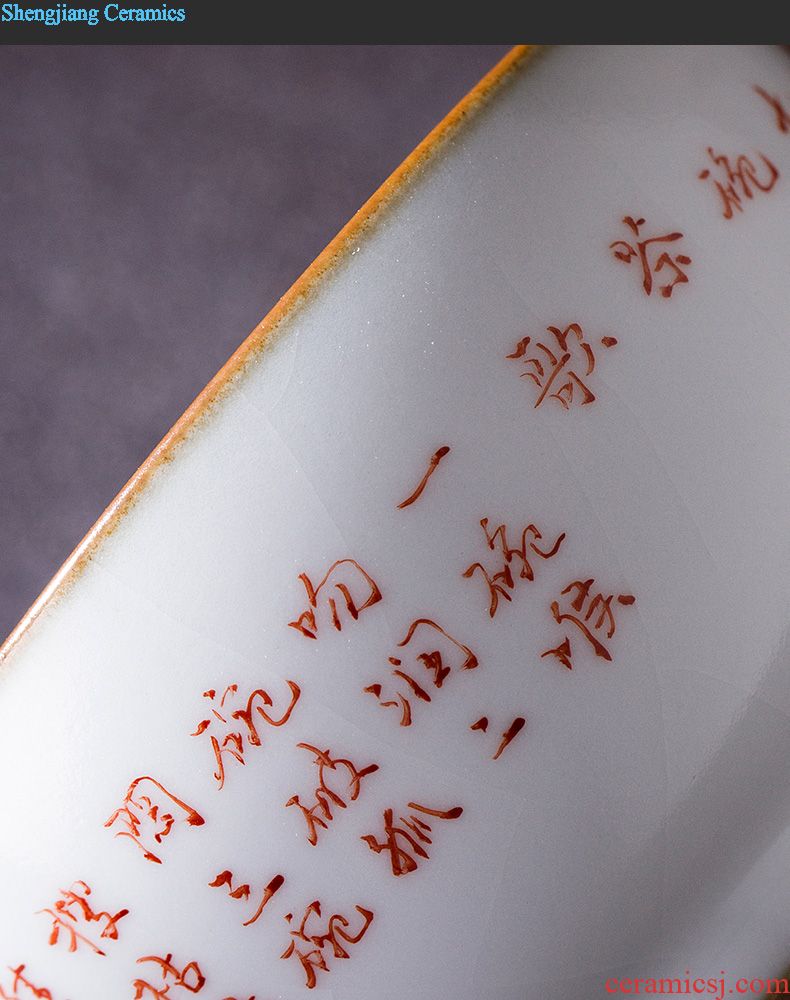 碗茶歌
一碗喉
吻润二
碗破孤
闷三碗
搜枯
Shengjiang Ceramics
ceramicsj.com